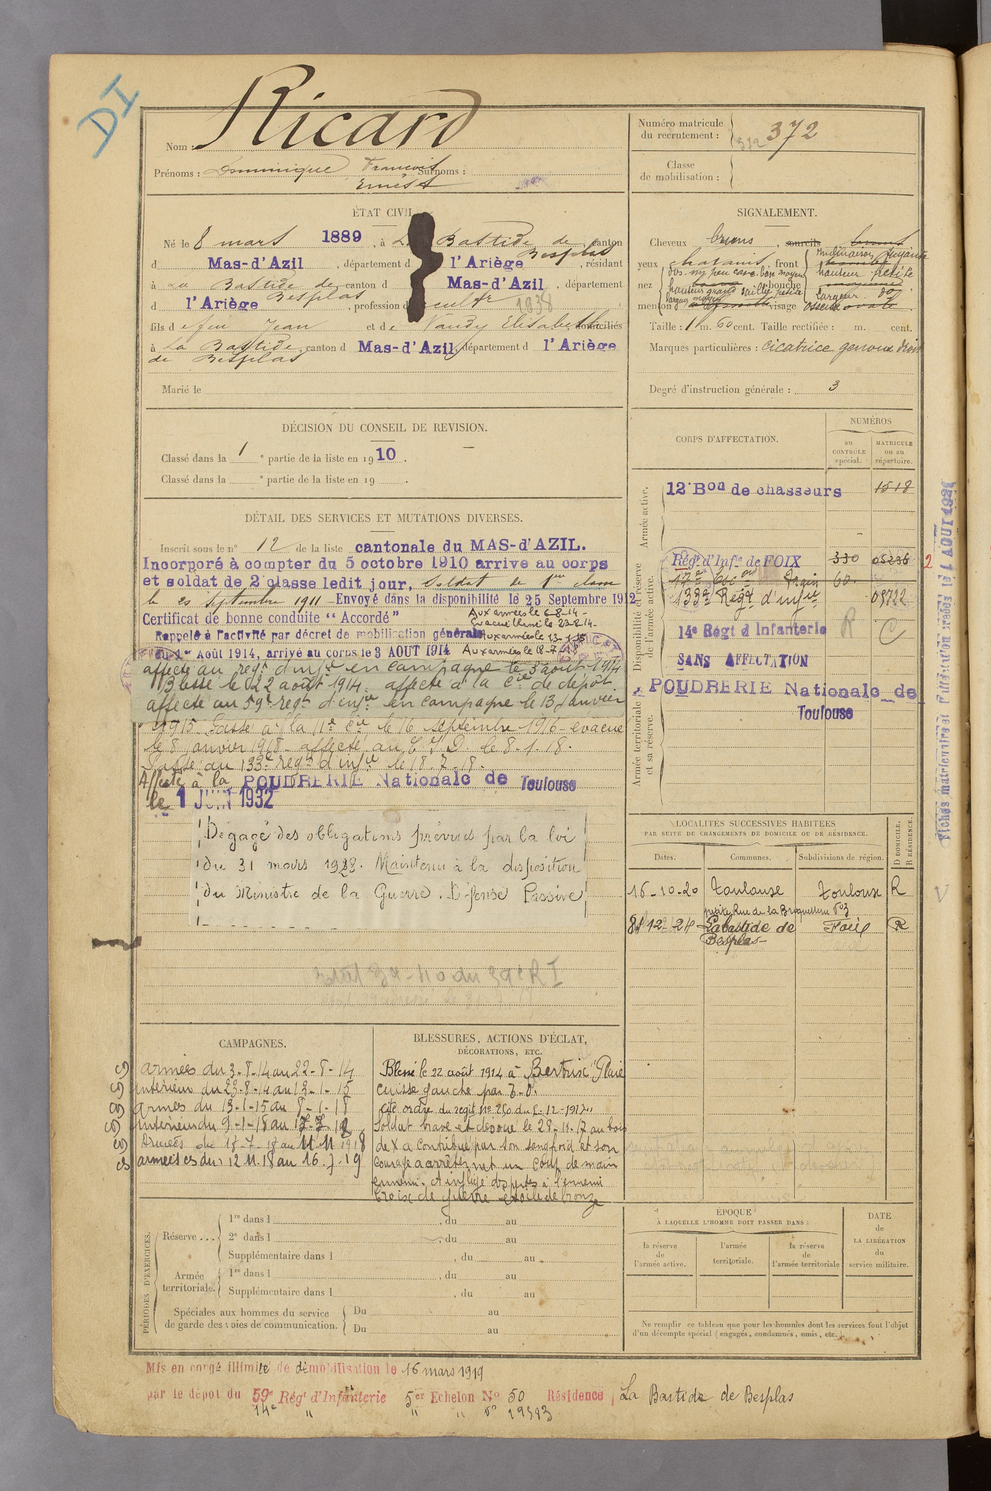 DI
Nom : Ricard
Prénoms : Dominique François Surnoms :
Ernest
Numéro matricule
du recrutement : 372
Classe
de mobilisation :
ÉTAT CIVIL
Né le 8 mars 1889, à La Bastide de Besplas, canton
d Mas-d'Azil, département d l'Ariège, résidant
à La Bastide de Besplas, canton d Mas-d'Azil, département
d l'Ariège, profession d cultr 1938
fils de feu Jean et de Vaudy Elisabeth domiciliés
à La Bastide de Besplas, canton d Mas-d'Azil, département d l'Ariège
Marié le
SIGNALEMENT.
Cheveux bruns, sourcils bruns
yeux chatains, front
nez bouche
menton visage osseux ovale.
Taille : 1 m. 60 cent. Taille rectifiée : m. cent.
Marques particulières : cicatrice genoux droit
Degré d'instruction générale : 3
DÉCISION DU CONSEIL DE REVISION.
Classé dans la 1e partie de la liste en 1910.
Classé dans la e partie de la liste en 19 .
CORPS D'AFFECTATION.
NUMÉROS
AU CONTRÔLE spécial.
MATRICULE OU AU répertoire.
Armée active.
12e Bon de chasseurs 1518
Disponibilité et réserve de l'armée active.
Régt d'Infie de FOIX 330 05236
133e Régt d'infie 09722
14e Régt d'Infanterie R C
SANS AFFECTATION
Armée territoriale et sa réserve.
POUDRERIE Nationale de
Toulouse
DÉTAIL DES SERVICES ET MUTATIONS DIVERSES.
Inscrit sous le n° 12 de la liste cantonale du MAS-d'AZIL.
Incorporé à compter du 5 octobre 1910 arrivé au corps
et soldat de 2e classe ledit jour, Soldat de 1ère classe
le 25 septembre 1911 - Envoyé dans la disponibilité le 25 Septembre 1912
Certificat de bonne conduite "Accordé"
Aux armées le 6-8-14 -
Evacué blessé le 23-8-14 -
Rappelé à l'activité par décret de mobilisation générale Aux armées le 13-1-15
du 1er Août 1914, arrivé au corps le 3 AOUT 1914 Aux armées le 18-7-18
affecté au régt d'infie en campagne le 5 août 1914
Blessé le 22 août 1914. affecté à la Cie de dépôt
affecté au 59e régt d'infie en campagne le 13 janvier
1915. Passé à la 11e Cie le 16 septembre 1916 évacué
le 8 janvier 1918 - affecté au C.I.D. le 8.1.18.
Passé au 133e régt d'infie le 18.7.18.
Affecté à la POUDRERIE Nationale de Toulouse
le 1 JUIN 1932
Dégagé des obligations prévues par la loi
du 31 mars 1928. Maintenu à la disposition
du Ministre de la Guerre. Défense Passive
LOCALITÉS SUCCESSIVES HABITÉES
PAR SUITE DE CHANGEMENTS DE DOMICILE OU DE RÉSIDENCE.
Dates. Communes. Subdivisions de région. D DOMICILE. R RÉSIDENCE.
15-10-20 Toulouse Toulouse R
8-12-24 Labastide de Foix R
Besplas
CAMPAGNES.
armées du 3-8-14 au 22-8-14
Intérieur du 23-8-14 au 12-1-15
Armées du 13-1-15 au 8-1-18
Intérieur du 9-1-18 au 17-7-18
Armées du 18-7-18 au 11 11 1918
armées es du 12 11.18 au 16.7.19
BLESSURES, ACTIONS D'ÉCLAT,
DÉCORATIONS, ETC.
Blessé le 22 août 1914 à Bertrix Plaie
cuisse gauche par E.O.
Cité ordre du régit no 250 du 5-12-1917
Soldat brave et dévoué le 28-11-17 au bois
de X a contribué par son sangfroid et son
courage à arrêter net un coup de main
ennemi et infligé des pertes à l'ennemi
Croix de guerre étoile de bronze
PÉRIODES D'EXERCICES.
Réserve . . . 1re dans l , du au
2e dans l , du au
Supplémentaire dans l , du au
Armée territoriale. 1re dans l , du au
Supplémentaire dans l , du au
Spéciales aux hommes du service
de garde des voies de communication. Du au
Du au
ÉPOQUE
À LAQUELLE L'HOMME DOIT PASSER DANS :
la réserve de l'armée active.
l'armée territoriale.
la réserve de l'armée territoriale
DATE de LA LIBÉRATION du service militaire.
Ne remplir ce tableau que pour les hommes dont les services font l'objet
d'un décompte spécial (engagés, condamnés, omis, etc.)
Mis en congé illimité de démobilisation le 16 mars 1919
par le dépôt du 59e Régt d'Infanterie 5er Echelon No 50 Résidence, La Bastide de Besplas
14e " " " no 19393